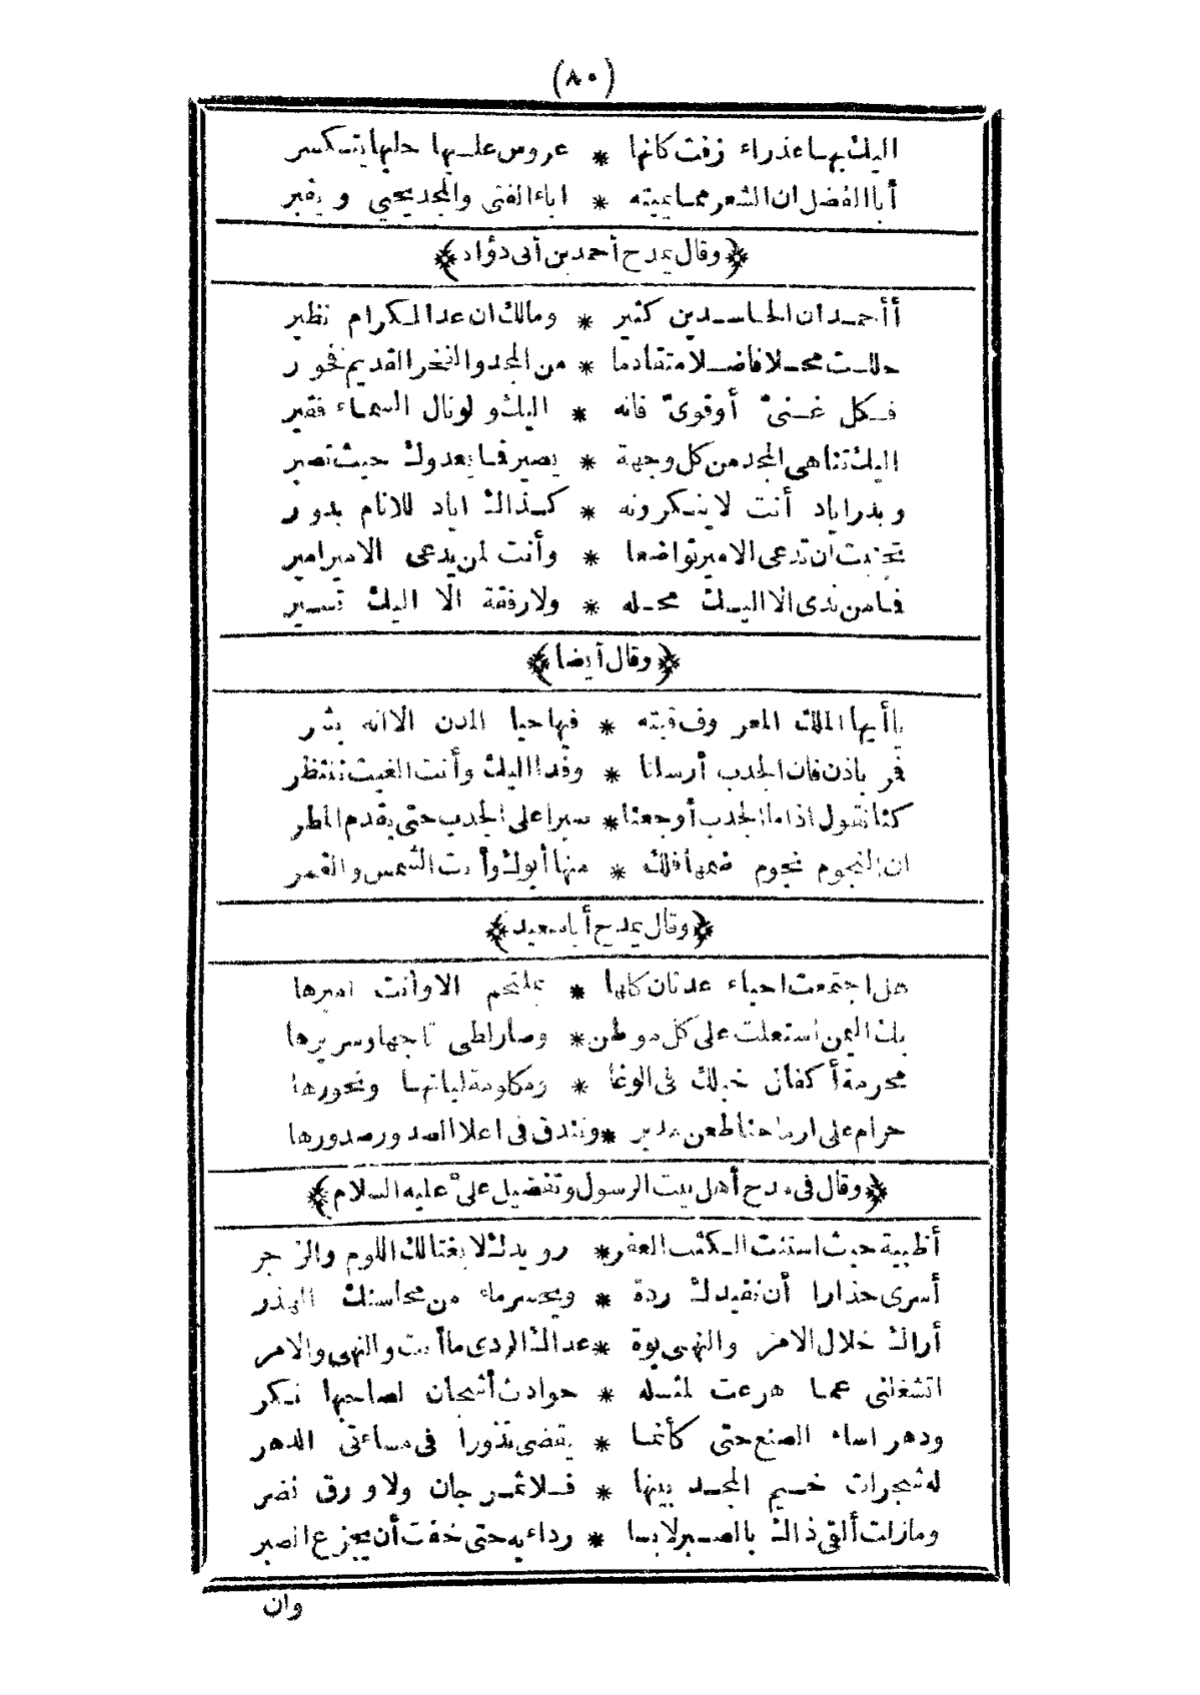 (٨٠)
اليك بها عذراء زفت كانها * عروس عليها حليها يتكسر
أبا الفضل ان الشعر مما يميته * اباء الفتى والمجد يحيي ويقبر
﴿وقال يمدح أحمد بن أبى دؤاد﴾
أأحمد ان الحاسدين كثير * ومالك ان عد الكرام نظير
حللت محلا فاضلا متقادما * من المجد والفخر القديم فخور
فكل غنىّ أوقوىّ فانه * اليك ولو نال السماء فقير
اليك تناهى المجد من كل وجهة * يصير فما يعدوك حيث تصير
وبدر اياد أنت لا ينكرونه * كذاك اياد للانام بدور
تجنبت ان تدعى الامير تواضعا * وأنت لمن يدعى الامير امير
فما من ندى الا اليك محله * ولا رفقة الا اليك تسير
﴿وقال أيضا﴾
ياأيها الملك المعروف قبته * فيها حيا المدن الا انه بشر
قم باذن فان الجدب أرسلنا * وفدا اليك وأنت الغيث ننتظر
كنا نقول اذا ما الجدب أوجعنا * صبرا على الجدب حتى يقدم المطر
ان النجوم نجوم ضمها فلك * منها أبوك وأنت الشمس والقمر
﴿وقال يمدح أبا سعيد﴾
هل اجتمعت احياء عدنان كلها * بملتحم الا وأنت اميرها
بك اليمن استعلت على كل موطن * وصار لطى تاجها وسريرها
محرمة أكفال خيلك فى الوغا * ومكلومة لباتها ونحورها
حرام على ارماحنا طعن مدبر * وتندق فى اعلا الصدور صدورها
﴿وقال فى مدح أهل بيت الرسول وتفضيل علىّ عليه السلام﴾
أظبية حيث استنت الكثب العفر * رويدك لا يغتالك اللوم والزجر
أسرى حذارا أن تقيدك ردة * ويحسر ماء من محاسنك الهذر
أراك خلال الامر والنهى بوة * عداك الردى ما أنت والنهى والامر
اتشغلنى عما هرعت لمثله * حوادث أشجان لصاحبها نكر
ودهر اساء الصنع حتى كأنما * يقضى نذورا فى مساءتى الدهر
له شجرات خيم المجد بينها * فلا ثمر جان ولا ورق نضر
ومازلت ألقى ذاك بالصبر لابسا * رداءيه حتى خفت أن يجزع الصبر
وان